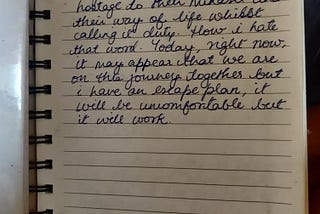 hostage to their
their way of life whilst
calling it duty. How i hate
that word. Today, right now,
it may appear that we are
on the journey together but
i have an escape plan, it
will be uncomfortable but
it will work.